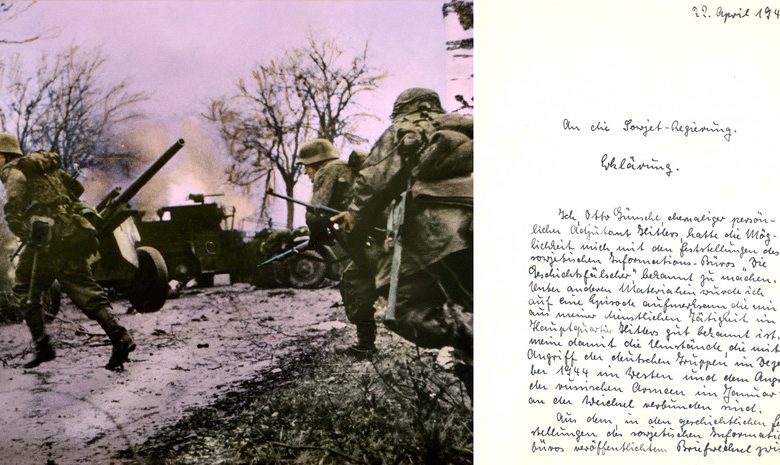 22. April 194
An die Sowjet-Regierung.
Erklärung.
Ich, Otto Günsche, ehemaliger persön-
licher Adjutant Hitlers, hatte die Mög-
lichkeit mich mit den Feststellungen des
sowjetischen Informations-Büros "Die
Geschichtsfälscher" bekannt zu machen.
Unter anderen Materialien wurde ich
auf eine Episode aufmerksam die mir
aus meiner dienstlichen Tätigkeit im
Hauptquartier Hitlers gut bekannt ist.
meine damit die Umstände, die mit
Angriff der deutschen Truppen im Deze
ber 1944 im Westen und dem Ang
der russischen Armeen im Januar
an der Weichsel verbunden sind.
Aus dem, in den geschichtlichen Fe
stellungen des sowjetischen Informati
büros veröffentlichtem Briefwechsel zwi